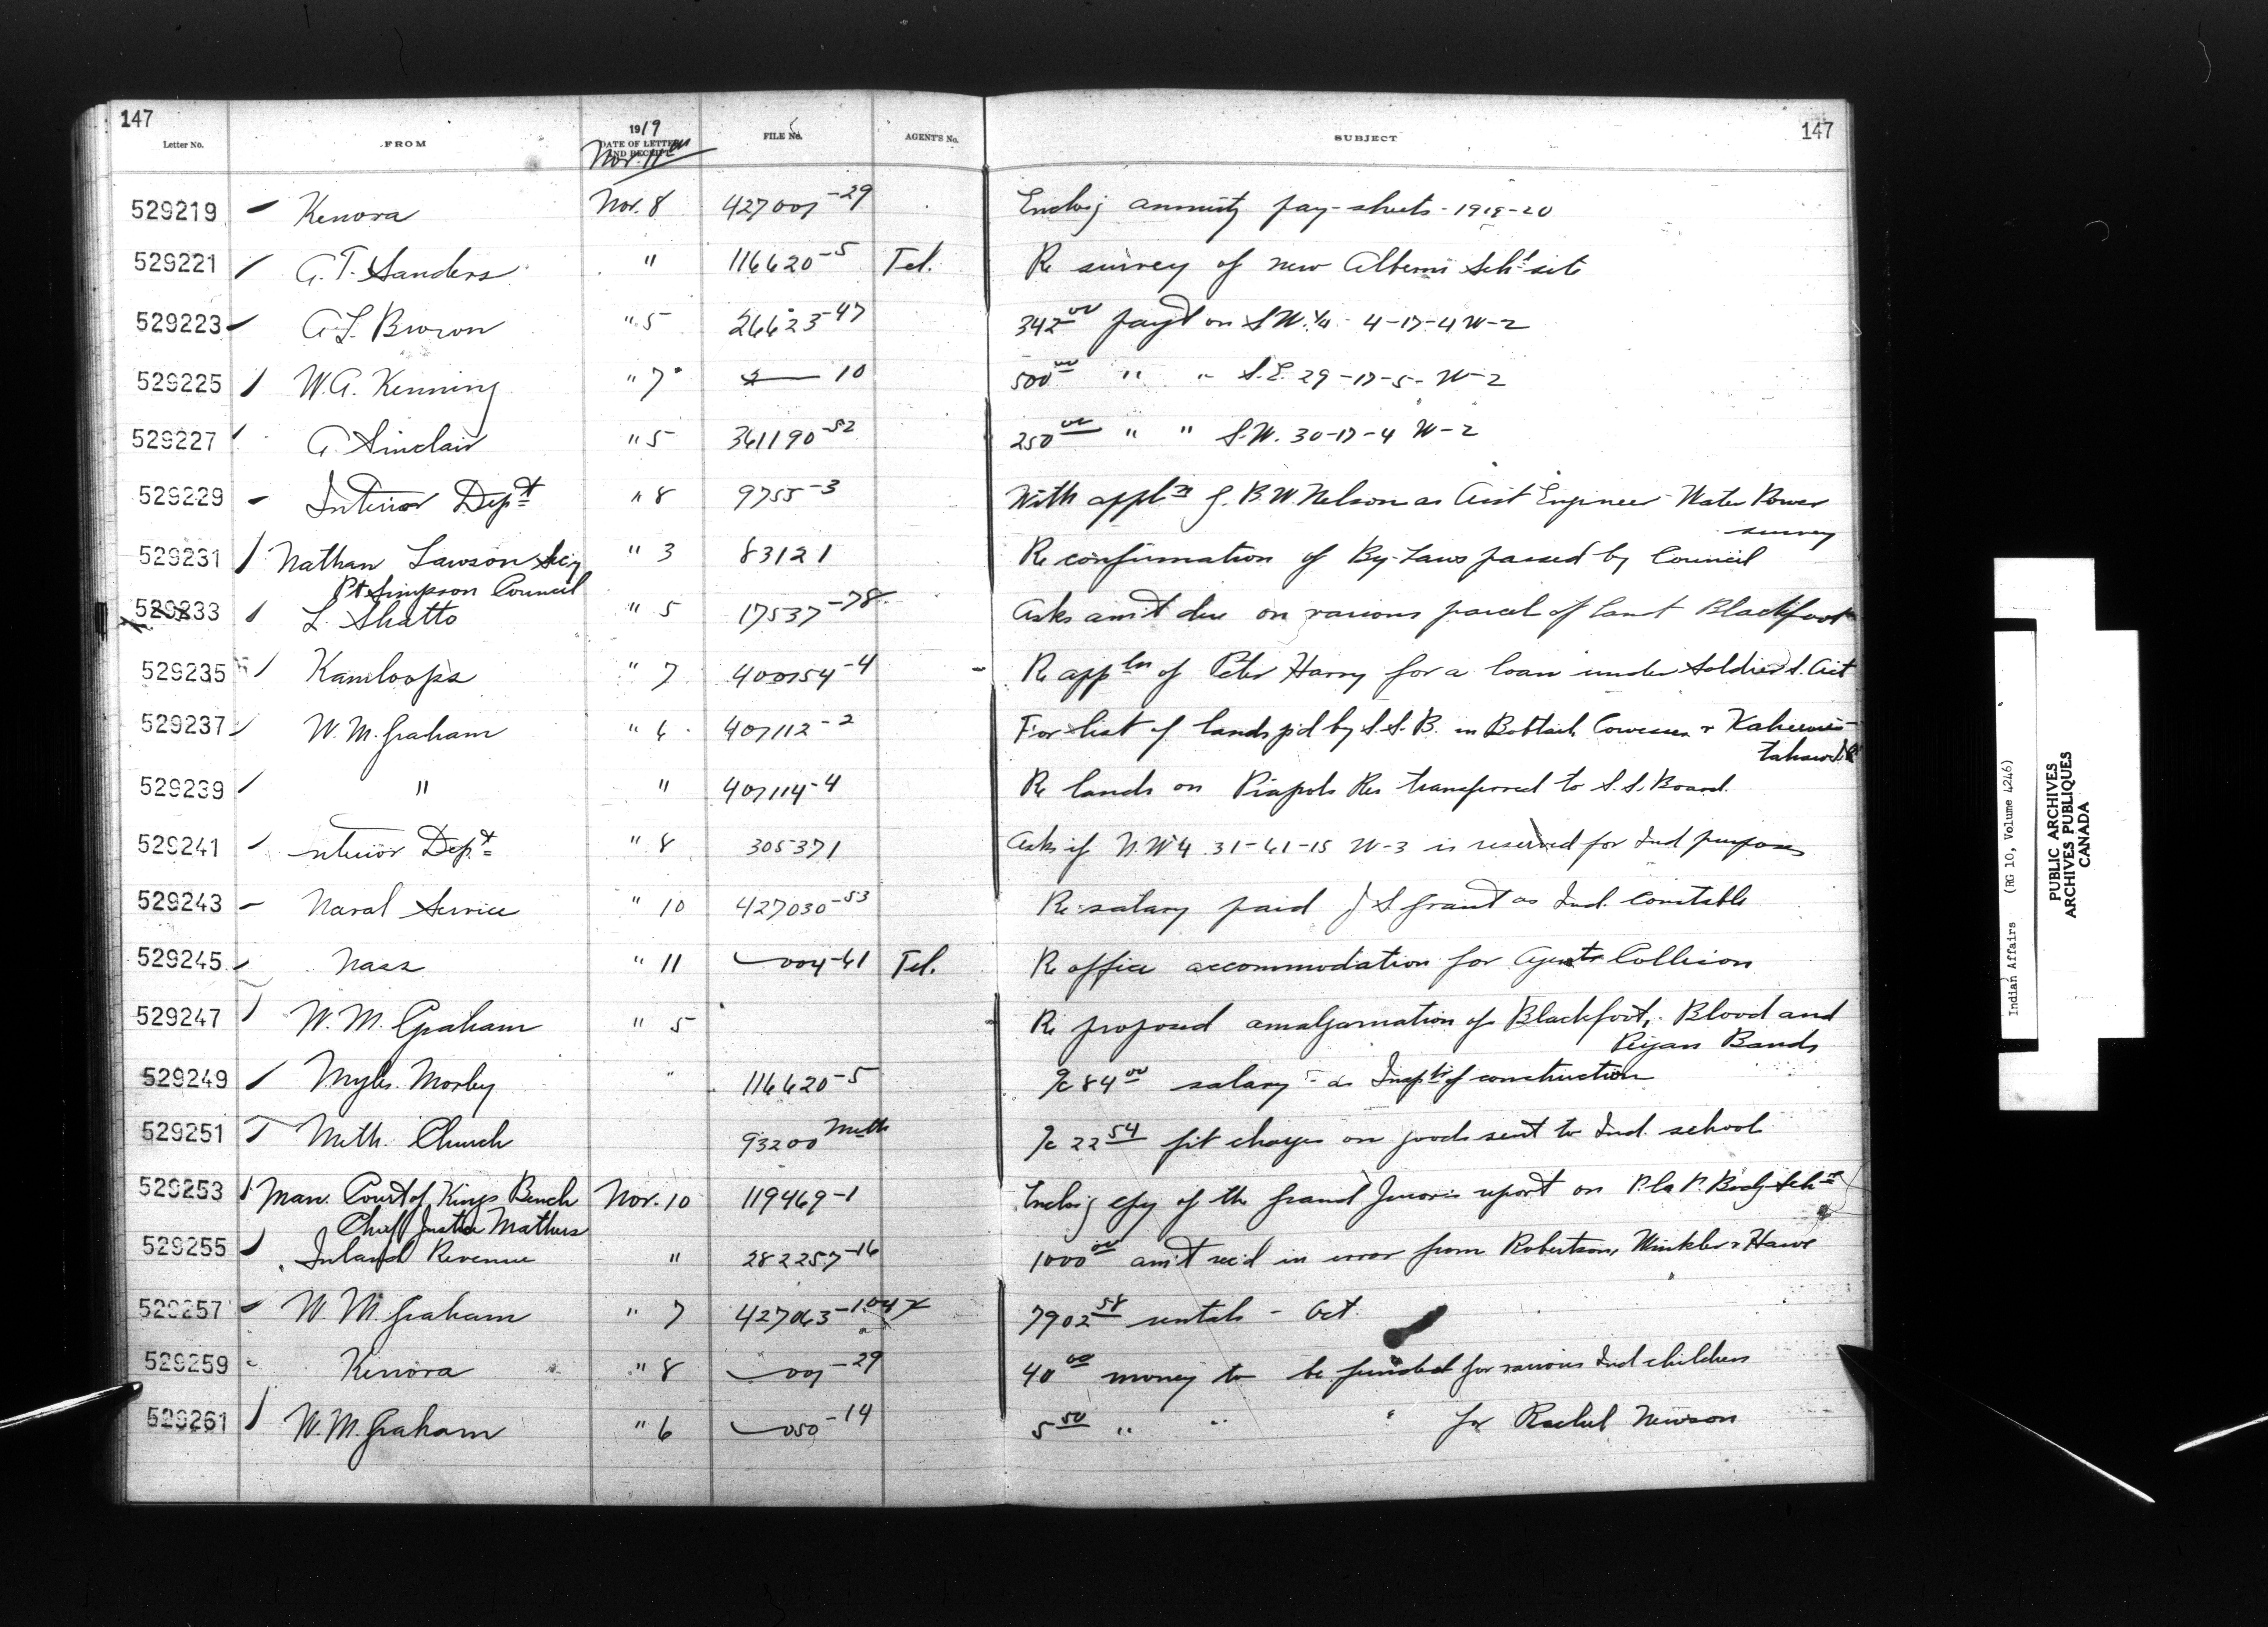 147
147
Letter No. FROM 1919 DATE OF LETTER AND RECEIPT FILE No. AGENT'S No. SUBJECT
Nov. 11th
529219 Kenora Nov. 8 427007-29 Enclos'g annuity pay-sheets - 1919-20
529221 G. T. Sanders " 116620-5 Tel. Re survey of new Alberni Sch'l site
529223 A. L. Brown " 5 26623-47 342 00 paym't on S.W. 1/4 - 4-17-4 W-2
529225 W. A. Kenning " 7 10 500 00 " " S.E. 29-17-5- W-2
529227 A. Sinclair " 5 361190-52 250 00 " " S.W. 30-17-4 W-2
529229 Interior Dept " 8 9755-3 With appl'n of B. W. Nelson as Asst Engineer - Water Power
survey
529231 Nathan Lawson Sec'y " 3 83121 Re confirmation of By-Laws passed by Council
Pt Simpson Council
529233 L. Shatto " 5 17537-78 Asks am't due on various parcel of land Blackfoot
529235 Kamloops " 7 400154-4 Re appln of Peter Harry for a loan under Soldier S. Act
529237 W. M. Graham " 6 407112-2 For list of lands p'd by S.S.B. in Bobtail Cowesses & Kahkewis-
tahaw
529239 " " 407114-4 Re lands on Piapots Res transferred to S. S. Board.
529241 nterior Dept " 8 305371 Asks if N.W 4 31-61-15 W-3 is reserved for Ind purposes
529243 Naval Service " 10 427030-53 Re salary paid J S Grant as Ind. Constable
529245 Nass " 11 004-61 Tel. Re office accommodation for Agents Collison
529247 W. M. Graham " 5 Re proposed amalgamation of Blackfoot, Blood and
Peigan Bands
529249 Myles Morley " 116620-5 a/c 84 00 salary as Insp'tr of construction
529251 Meth. Church 93200 Meth a/c 22 54 frt charges on goods sent to Ind. school
529253 Man. Court of Kings Bench Nov. 10 119469-1 Enclos'g cpy of the Grand Juror's report on P. la P. Bod'g Sch'l
Chief Justice Mathers
529255 Inland Revenue " 282257-16 1000 00 am't rec'd in error from Robertson, Winkler & Hawe
529257 W. M. Graham " 7 427063-1 7902 58 rentals - Oct
529259 Kenora " 8 007-29 40 00 money to be funded for various Ind children
529261 W. M. Graham " 6 050-14 5 50 " " " for Rachel Newson
Indian Affairs (RG 10, Volume 4246)
PUBLIC ARCHIVES
ARCHIVES PUBLIQUES
CANADA